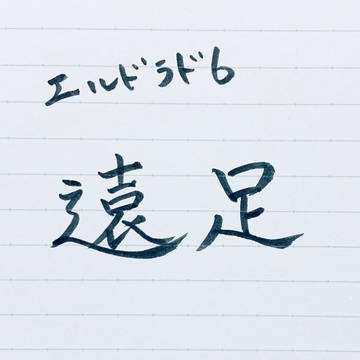 エルドラド6
遠足